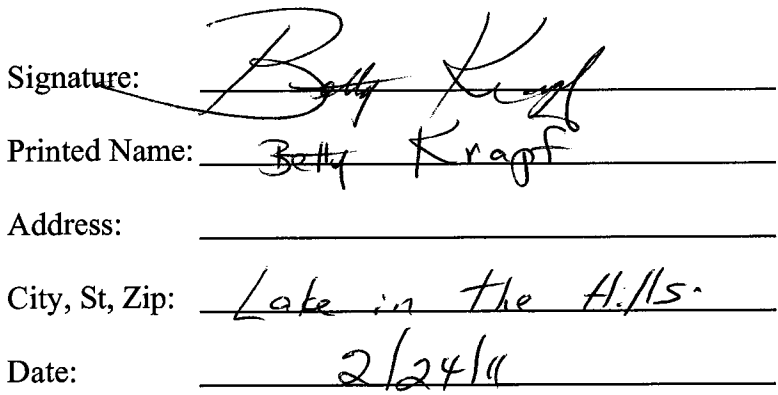 Signature: Betty Krapf
Printed Name: Betty Krapf
Address:
City, St, Zip: Lake in the Hills.
Date: 2/24/11